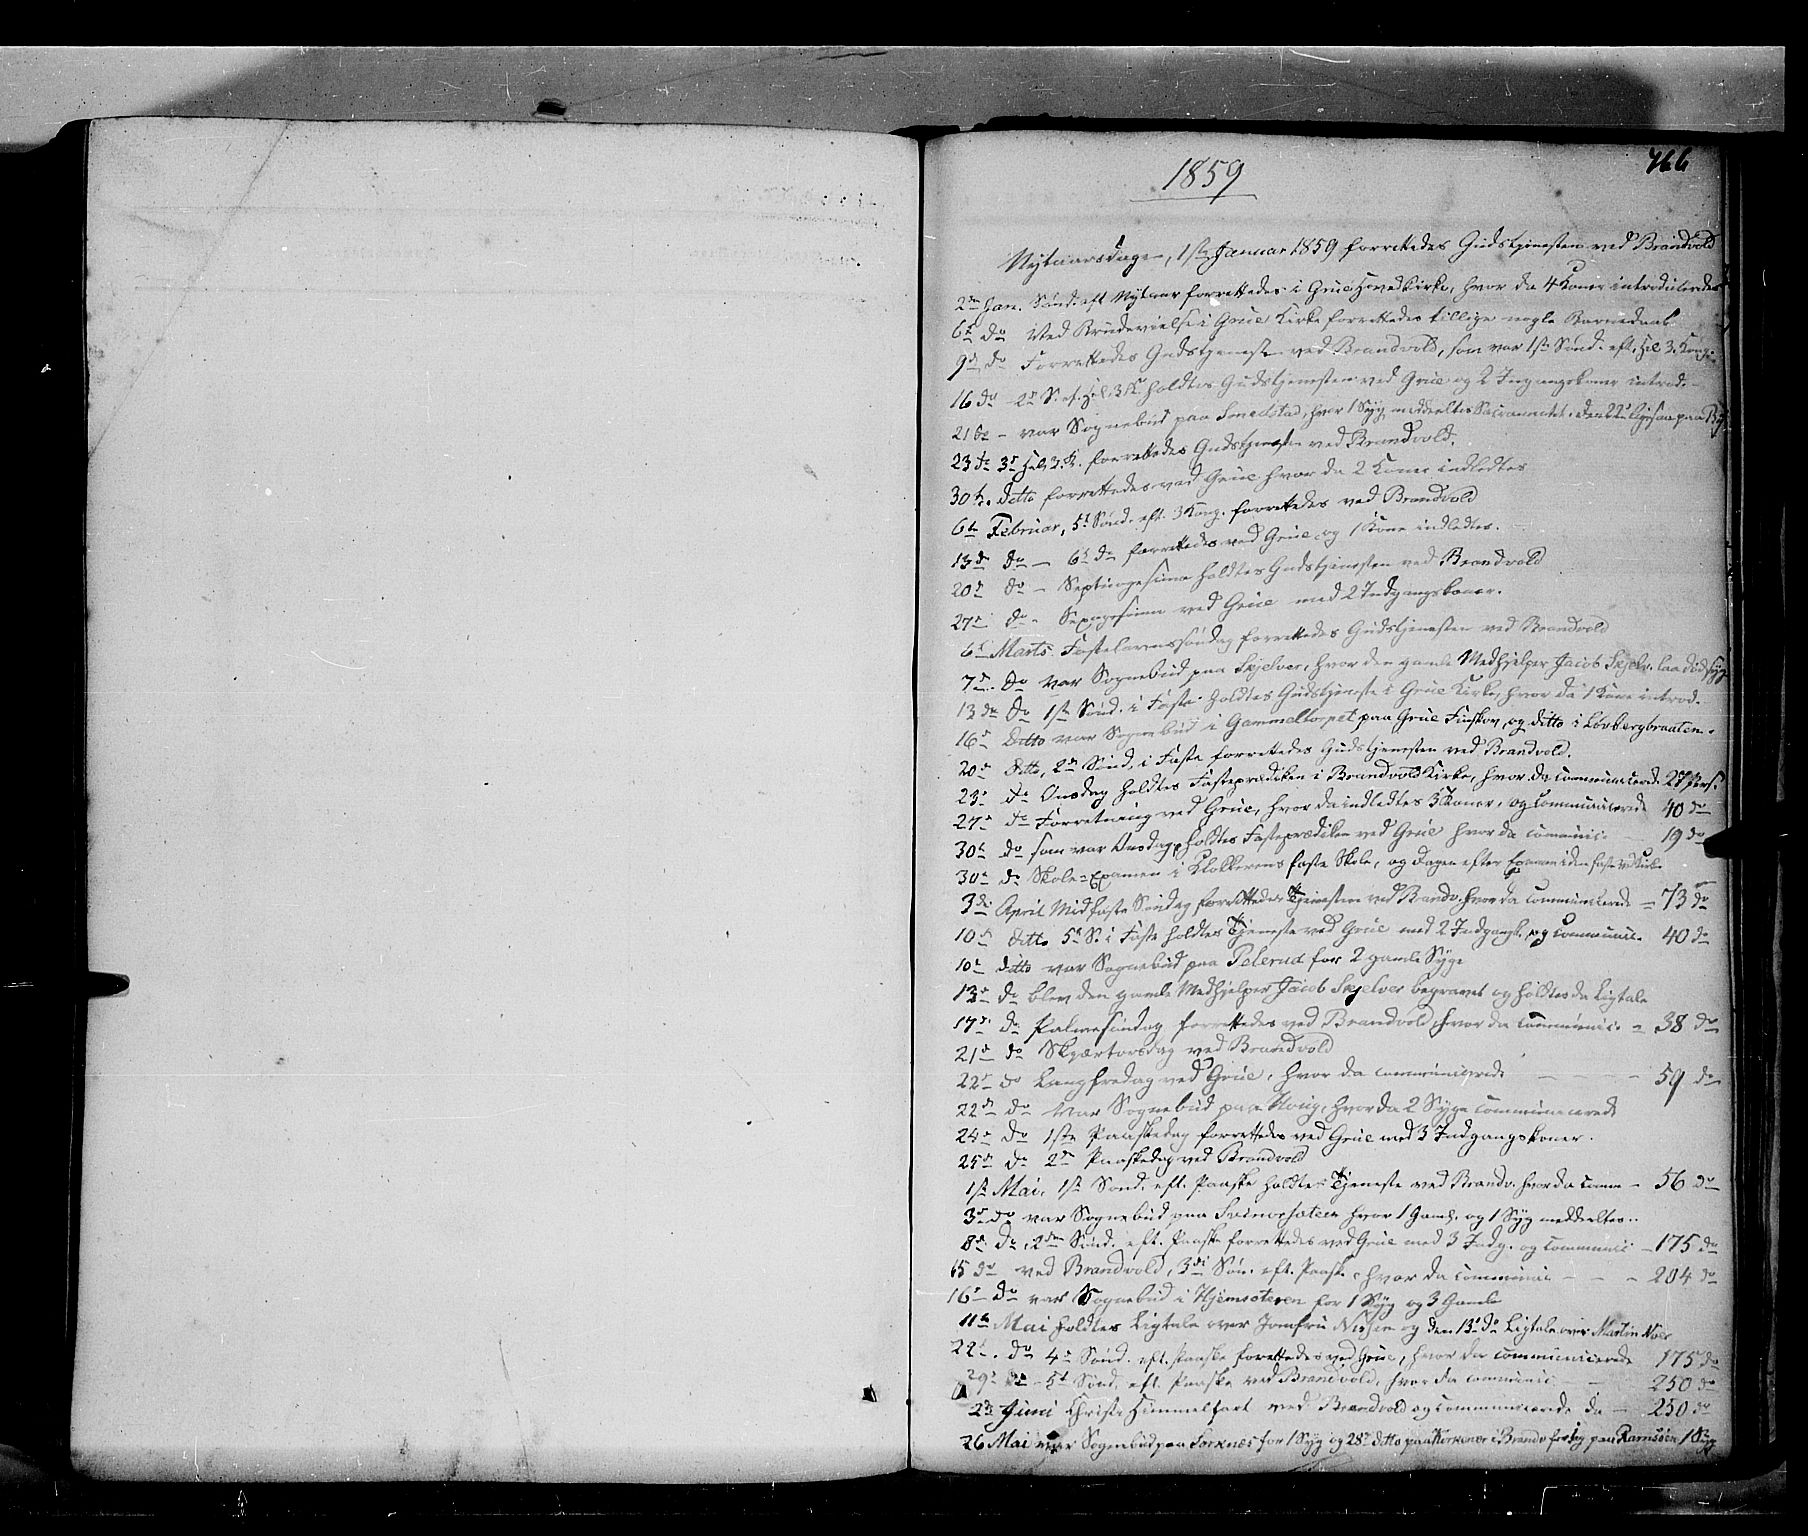 466
1859
Nytaarsdagen, 1ste Januar 1859 forrettedes Gudstjenesten ved Brandvold
2den Jan. Sønd. eft. Nytaar forrettedes i Grue Hovedkirke, hvor da 4 Koner introduceredes
6te do Ved Brudevielse i Grue Kirke forrettedes tillige nogle Barnedaab
9de do Forrettedes Gudstjenesten ved Brandvold, som var 1ste Sønd. eft. Hel. 3. Kong.
16 do 2den S. ef. Hel. 3 K. holdtes Gudstjenesten ved Grue og 2 Indgangskoner introd.
21 do - var Sognebud paa hvor 1 Syg meddeeltes Sacramentet, den 22de ligesaa paa
23de 3die Hel. 3. K. forrettedes Gudstjenesten ved Brandvold.
30te ditto forrettedes ved Grue hvor da 2 Koner indledtes
6te Februar, 5te Sønd. eft. 3 Kong. forrettedes ved Brandvold
13de do - 6te do forrettedes ved Grue og 1 Kone indledtes.
20de do - Septuagesima holdtes Gudstjenesten ved Brandvold
27de do - Sexagesima ved Grue med 2 Indgangskoner.
6te Marts. Fastelavnssøndag forrettedes Gudstjenesten ved Brandvold
7de do var Sognebud paa Skjelver, hvor den gamle Medhjelper Jacob Skjelv. laa dødssyg
13de do 1ste Sønd. i Faste holdtes Gudstjeneste i Grue Kirke, hvor da 1 Kone introd.
16de ditto var Sognebud i Gammeltorpet paa Grue Finskov, og ditto i Løvbergbraaten.
20de ditto, 2den Sønd. i Faste forrettedes Gudstjenesten ved Brandvold.
23de do Onsdag holdtes Fasteprædiken i Brandvold Kirke, hvor da communicerede 27 Pers.
27de do Forretning ved Grue, hvor da indledtes 3 Koner, og communicerede 40 do
30te do som var Onsdag holdtes Fasteprædiken ved Grue hvor da communic. - 19 do
30te do Skole-Examen i Klokkerens faste Skole, og Dagen efter Examen i den faste ved Kirken
3de April Midfaste Søndag forrettedes Tjenesten ved Brandv. hvor da communicerede - 73 do
10de ditto 5te S. i Faste holdtes Tjeneste ved Grue med 2 Indgangsk. og communic. 40 do
10de ditto var Sognebud paa Pelerud for 2 gamle Syge
13de do blev den gamle Medhjelper Jacob Skjelver begravet og holdtes da Ligtale
17de do Palmesøndag forrettedes ved Brandvold, hvor da communic. - 38 do
21de do Skjærtorsdag ved Brandvold
22de do Langfredag ved Grue, hvor da communicerede - 59 do
22de do var Sognebud paa Houg, hvor da 2 Syge communicerede
24de do 1ste Paaskedag forrettedes ved Grue med 3 Indgangskoner.
25de do 2den Paaskedag ved Brandvold
1ste Mai, 1ste Sønd. eft. Paaske holdtes Tjeneste ved Brandv. hvor da comm - 56 do
3de do var Sognebud paa hvor 1 Gaml. og 1 Syg meddeeltes.
8de do, 2den Sønd. eft. Paaske forrettedes ved Grue med 3 Indg. og communic - 175 do
15 do ved Brandvold, 3die Søn. eft. Paaske, hvor da communic - - - 204 do
16de do var Sognebud i Hjemsæteren for 1 Syg og 3 Gamle
11te Mai holdtes Ligtale over Jomfru Nissen og den 13de do Ligtale over Martin Noer
22de do 4de Sønd. eft. Paaske forrettedes ved Grue, hvor da communicerede 175 do
29de do - 5te Sønd. eft. Paaske ved Brandvold, hvor da communic - 250 do
2de Juni Christi Himmelfart ved Brandvold og communicerede da - 250 do
26 Mai var Sognebud paa Sorknes for 1 Syg og 28de ditto paa i Brandv paa 1 Syg